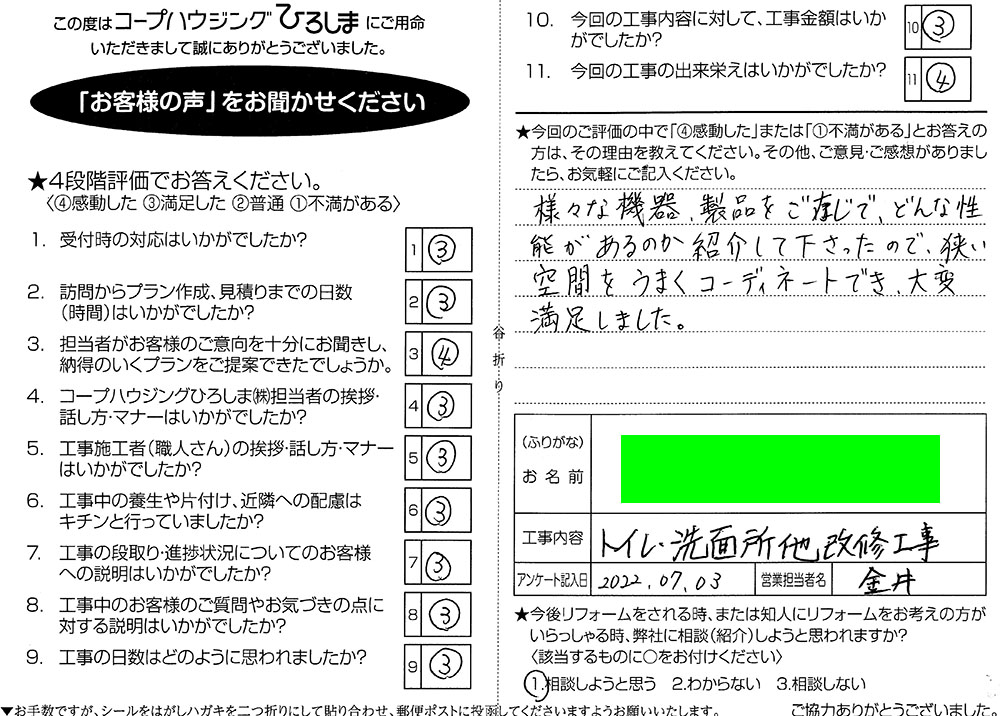 この度はコープハウジングひろしまにご用命
いただきまして誠にありがとうございました。
「お客様の声」をお聞かせください
★4段階評価でお答えください。
〈④感動した ③満足した ②普通 ①不満がある〉
1. 受付時の対応はいかがでしたか?
1 ③
2. 訪問からプラン作成、見積りまでの日数
(時間)はいかがでしたか?
2 ③
3. 担当者がお客様のご意向を十分にお聞きし、
納得のいくプランをご提案できたでしょうか。
3 ④
4. コープハウジングひろしま㈱担当者の挨拶・
話し方・マナーはいかがでしたか?
4 ③
5. 工事施工者(職人さん)の挨拶・話し方・マナー
はいかがでしたか?
5 ③
6. 工事中の養生や片付け、近隣への配慮は
キチンと行っていましたか?
6 ③
7. 工事の段取り・進捗状況についてのお客様
への説明はいかがでしたか?
7 ③
8. 工事中のお客様のご質問やお気づきの点に
対する説明はいかがでしたか?
8 ③
9. 工事の日数はどのように思われましたか?
9 ③
▼お手数ですが、シールをはがしハガキを二つ折りにして貼り合わせ、郵便ポストに投函してくださいますようお願いいたします。
谷折り
10. 今回の工事内容に対して、工事金額はいか
がでしたか?
10 ③
11. 今回の工事の出来栄えはいかがでしたか?
11 ④
★今回のご評価の中で「④感動した」または「①不満がある」とお答えの
方は、その理由を教えてください。その他、ご意見・ご感想がありまし
たら、お気軽にご記入ください。
様々な機器、製品をご存じで、どんな性
能があるのか紹介して下さったので、狭い
空間をうまくコーディネートでき、大変
満足しました。
(ふりがな)
お名前
工事内容 トイレ・洗面所他改修工事
アンケート記入日 2022.07.03 営業担当者名 金井
★今後リフォームをされる時、または知人にリフォームをお考えの方が
いらっしゃる時、弊社に相談(紹介)しようと思われますか?
〈該当するものに○をお付けください〉
1.相談しようと思う 2.わからない 3.相談しない
ご協力ありがとうございました。